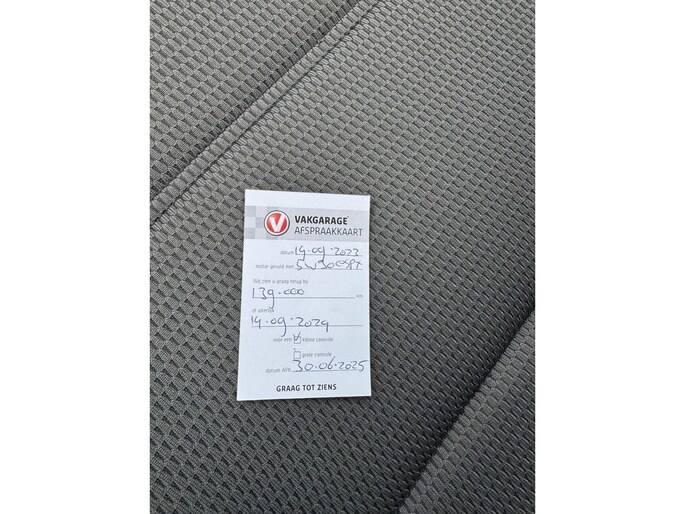 VAKGARAGE
AFSPRAAKKAART
datum 14-09-2022
motor gevuld met 5W30
We zien u graag terug bij
139.000 km
of uiterlijk
14-09-2024
voor een kleine controle
grote controle
datum APK 30-06-2025
GRAAG TOT ZIENS